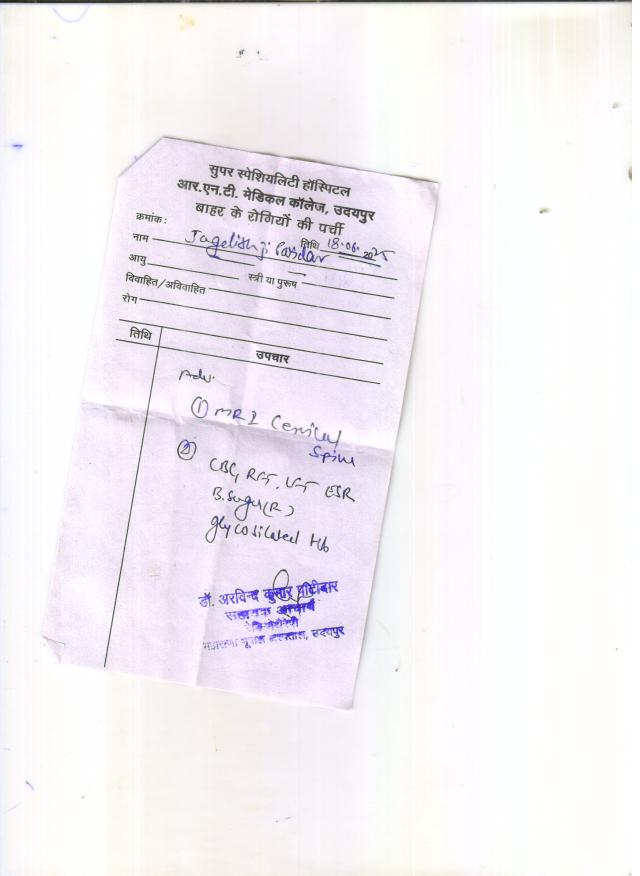 सुपर स्पेशियलिटी हॉस्पिटल
आर.एन.टी. मेडिकल कॉलेज, उदयपुर
बाहर के रोगियों की पर्ची
क्रमांक:
तिथि 18.06.2025
नाम Jagdish ji
आयु स्त्री या पुरूष
विवाहित/अविवाहित
रोग
तिथि उपचार
Adv.
① MRI Cervical
Spine
② CBC, RFT, LFT ESR
B.Sugar(R)
glycosilated Hb
डॉ. अरविन्द कुमार पाटीदार
सहायक आचार्य
महाराणा भूपाल अस्पताल, उदयपुर